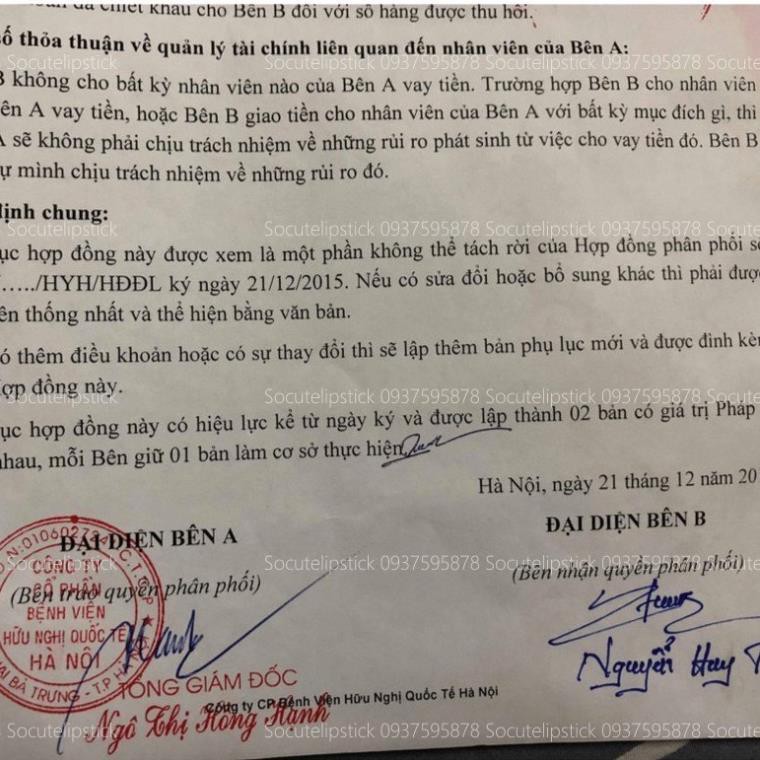 chiết khấu cho Bên B đối với số hàng được thu hồi.
số thỏa thuận về quản lý tài chính liên quan đến nhân viên của Bên A:
Socutelipstick 0937595878 Socutelipstick 0937595878 Socutelipstick 0937595878
B không cho bất kỳ nhân viên nào của Bên A vay tiền. Trường hợp Bên B cho nhân viên
ên A vay tiền, hoặc Bên B giao tiền cho nhân viên của Bên A với bất kỳ mục đích gì, thì
A sẽ không phải chịu trách nhiệm về những rủi ro phát sinh từ việc cho vay tiền đó. Bên B
ự mình chịu trách nhiệm về những rủi ro đó.
định chung:
Socutelipstick 0937595878 Socutelipstick 0937595878 Socutelipstick 0937595878
ục hợp đồng này được xem là một phần không thể tách rời của Hợp đồng phân phối s
…../HYH/HĐĐL ký ngày 21/12/2015. Nếu có sửa đổi hoặc bổ sung khác thì phải đượ
ên thống nhất và thể hiện bằng văn bản.
ó thêm điều khoản hoặc có sự thay đổi thì sẽ lập thêm bản phụ lục mới và được đình kè
Hợp đồng này.
Socutelipstick 0937595878 Socutelipstick 0937595878 Socutelipstick 0937595878
ục hợp đồng này có hiệu lực kể từ ngày ký và được lập thành 02 bản có giá trị Pháp
nhau, mỗi Bên giữ 01 bản làm cơ sở thực hiện.
Hà Nội, ngày 21 tháng 12 năm 20
ĐẠI DIỆN BÊN A
ĐẠI DIỆN BÊN B
Socutelipstick 0937595878 Socutelipstick 0937595878 Socutelipstick 0937595878
(Bên trao quyền phân phối)
(Bên nhận quyền phân phối)
CÔNG TY
CỔ PHẦN
BỆNH VIỆN
HỮU NGHỊ QUỐC TẾ
HÀ NỘI
HAI BÀ TRƯNG - T.P HÀ
Nguyễn Huy
TỔNG GIÁM ĐỐC
Công ty CP Bệnh Viện Hữu Nghị Quốc Tế Hà Nội
Ngô Thị Hồng Hạnh
Socutelipstick 0937595878 Socutelipstick 0937595878 Socutelipstick 0937595878